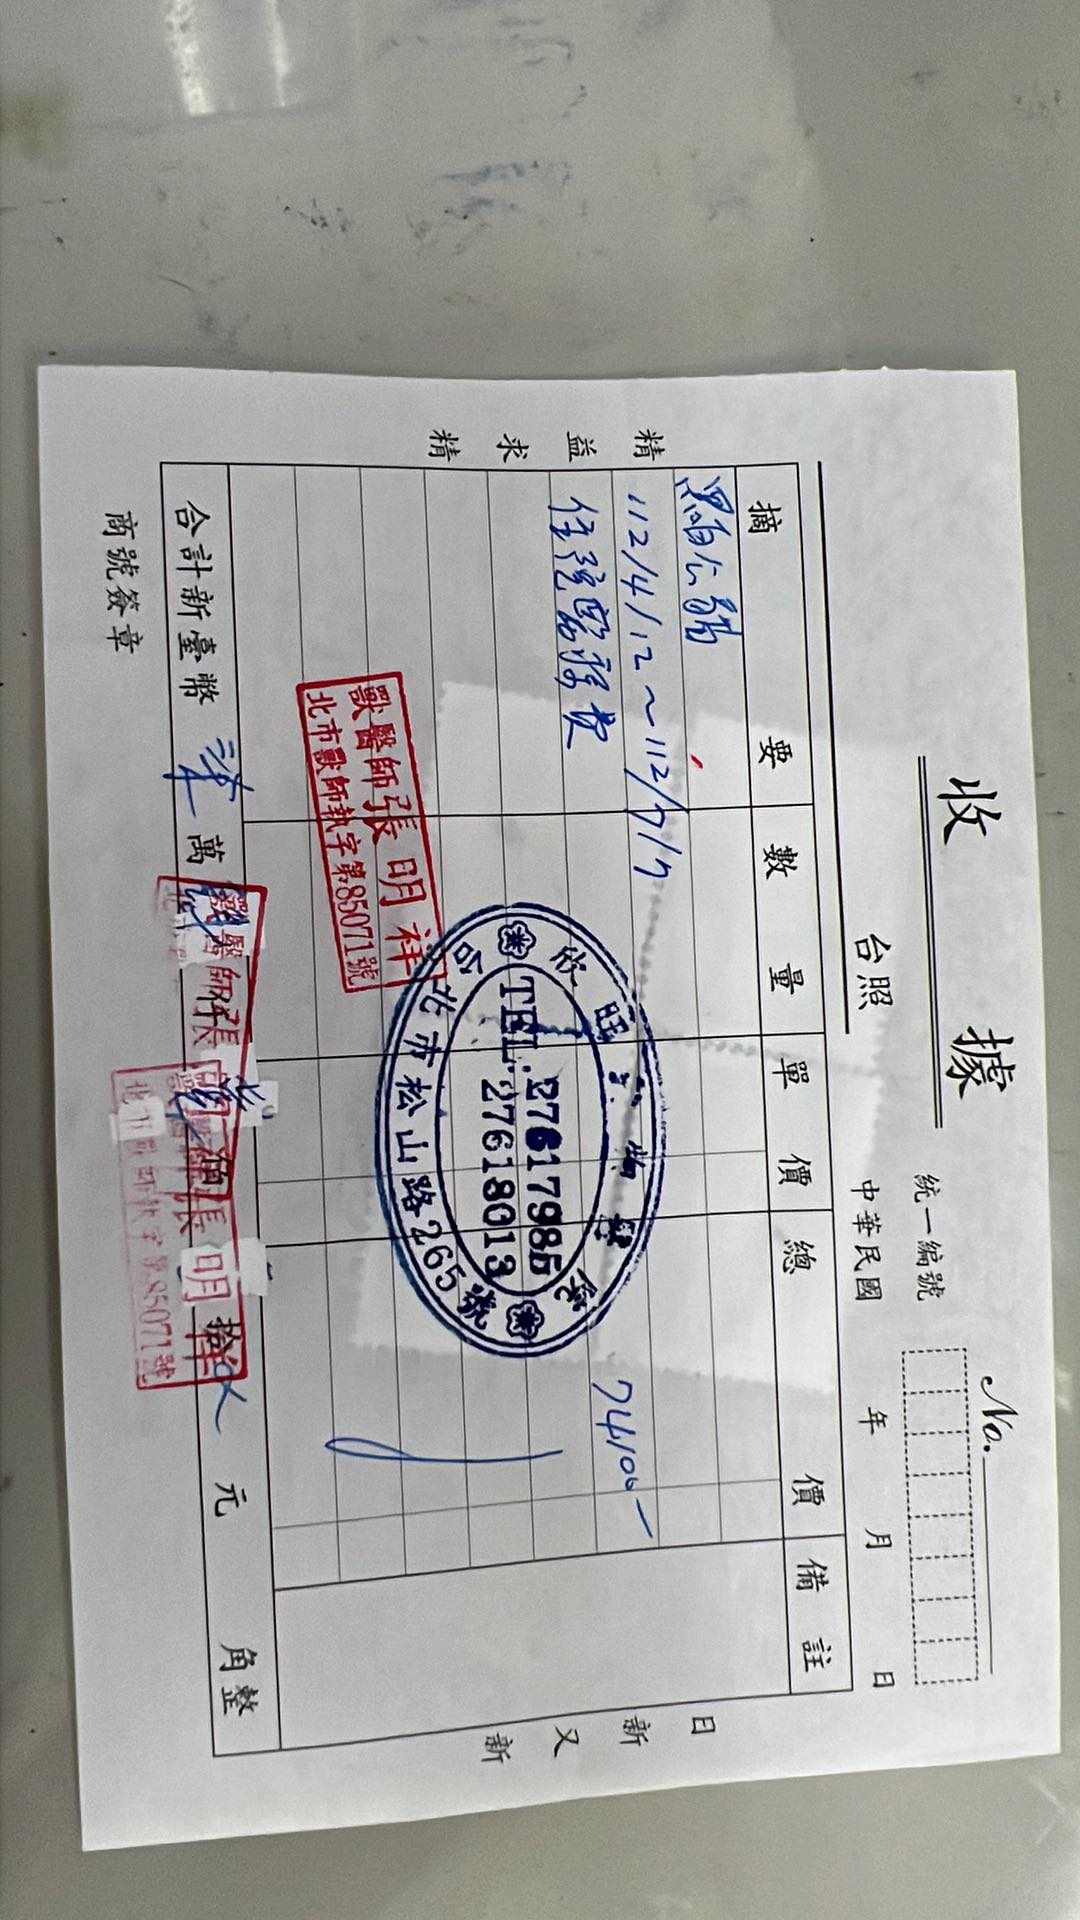 收據
No.
統一編號
台照
中華民國 年 月 日
摘要 數量 單價 總價 備註
黑白公貓
112/4/12～112/7/7
住院醫療費 74100-
精益求精
日新又新
欣旺 物醫院
TEL. 27617985
27618013
台北市松山路265號
獸醫師張明祥
北市獸師執字第85071號
合計新臺幣 柒 萬 仟 佰 拾 元 角整
獸醫師張
獸醫師張明祥
北市獸師執字第85071號
商號簽章